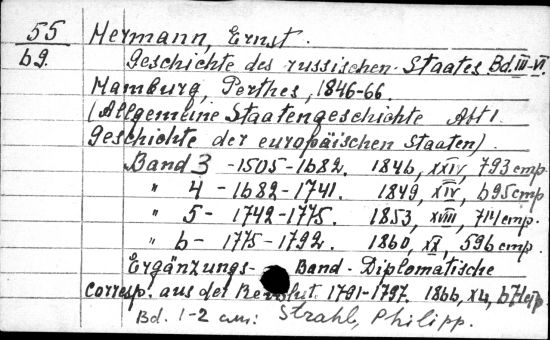 55 Hermann, Ernst.
69. Geschichte des russischen Staates Bd. III-VI.
Hamburg, Perthes, 1846-66
(Allgemeine Staatengeschichte Abt 1.
Geschichte der europäischen Staaten).
Band 3 - 1505-1682. 1846, XXIV, 793 стр.
" 4 - 1682-1741. 1849, XIV, 695 стр.
" 5 - 1742-1775. 1853, XVIII, 714 стр.
" 6 - 1775-1792. 1860, XX, 596 стр.
Ergänzungs- Band - Diplomatische
Corresp. aus der Revolut. 1791-1797. 1866,
Bd. 1-2 см: Strahl, Philipp.